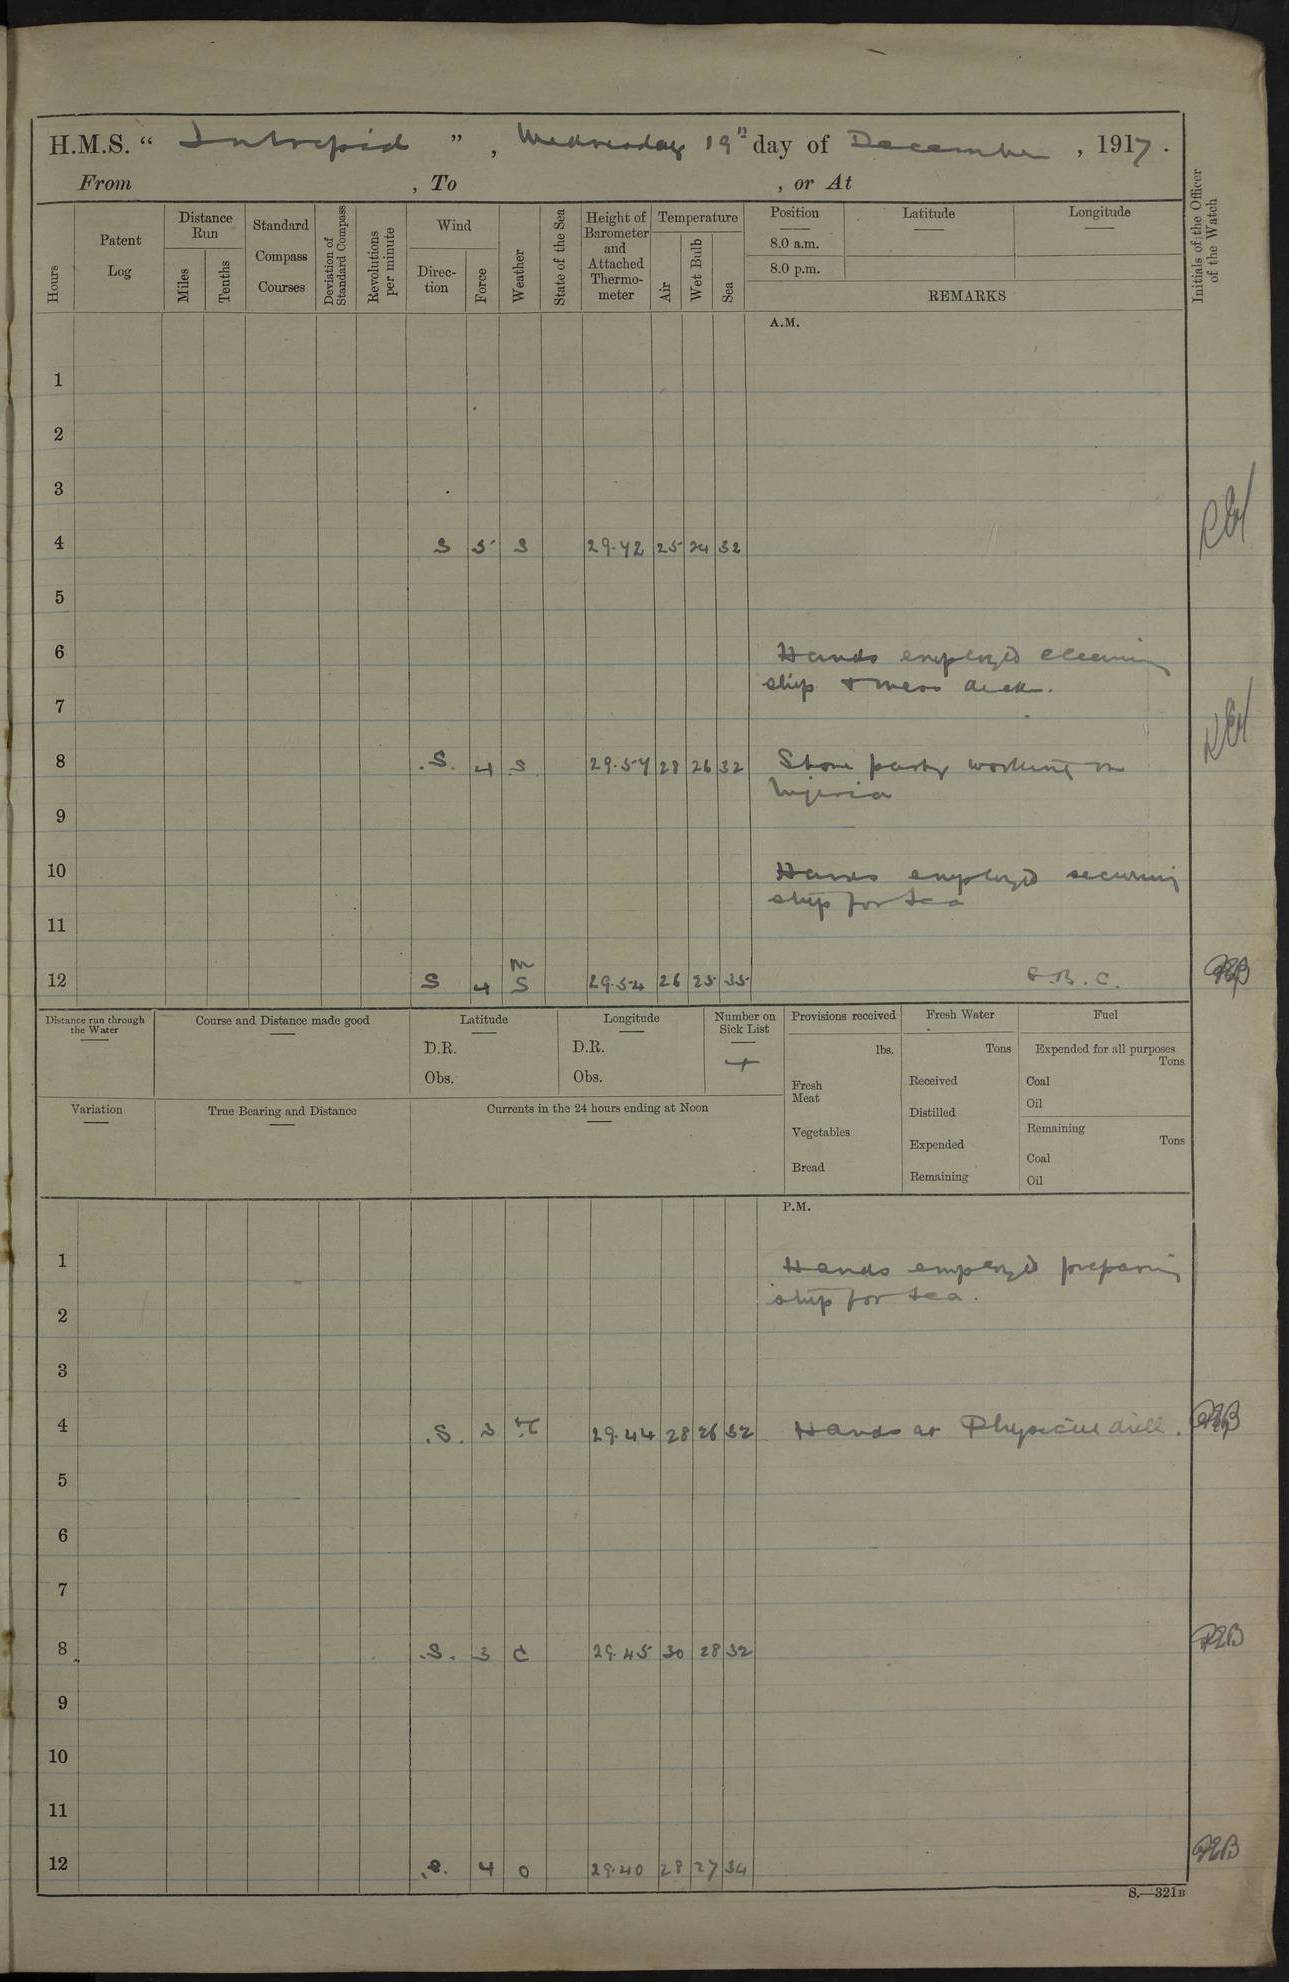 H.M.S. “ Intrepid ” , Wednesday 19th day of December , 1917 .
From , To , or At
Hours
Patent Log
Distance Run
Miles
Tenths
Standard Compass Courses
Deviation of Standard Compass
Revolutions per minute
Wind
Direction
Force
Weather
State of the Sea
Height of Barometer and Attached Thermometer
Temperature
Air
Wet Bulb
Sea
Position
8.0 a.m.
8.0 p.m.
Latitude
Longitude
REMARKS
Initials of the Officer of the Watch
A.M.
1
2
3
4 S 5 S 29.42 25 24 32
5
6 Hands employed cleaning
ship & mess deck.
7
8 S. 4 S 29.54 28 26 32 Store party working on
Nigeria
9
10 Hands employed securing
ship for sea
11
m
12 S 4 S 29.54 26 25 35
Distance run through the Water
Course and Distance made good
Latitude
D.R.
Obs.
Longitude
D.R.
Obs.
Number on Sick List
Provisions received
lbs.
Fresh Meat
Vegetables
Bread
Fresh Water
Tons
Received
Distilled
Expended
Remaining
Fuel
Expended for all purposes
Tons
Coal
Oil
Remaining
Tons
Coal
Oil
Variation
True Bearing and Distance
Currents in the 24 hours ending at Noon
P.M.
1 Hands employed preparing
ship for sea.
2
3
4 S. 3 29.44 28 26 32 Hands at Physical drill. PEB
5
6
7
8 S. 3 C 29.45 30 28 32 PEB
9
10
11
12 S. 4 O 29.40 28 27 34 PEB
S.—321B